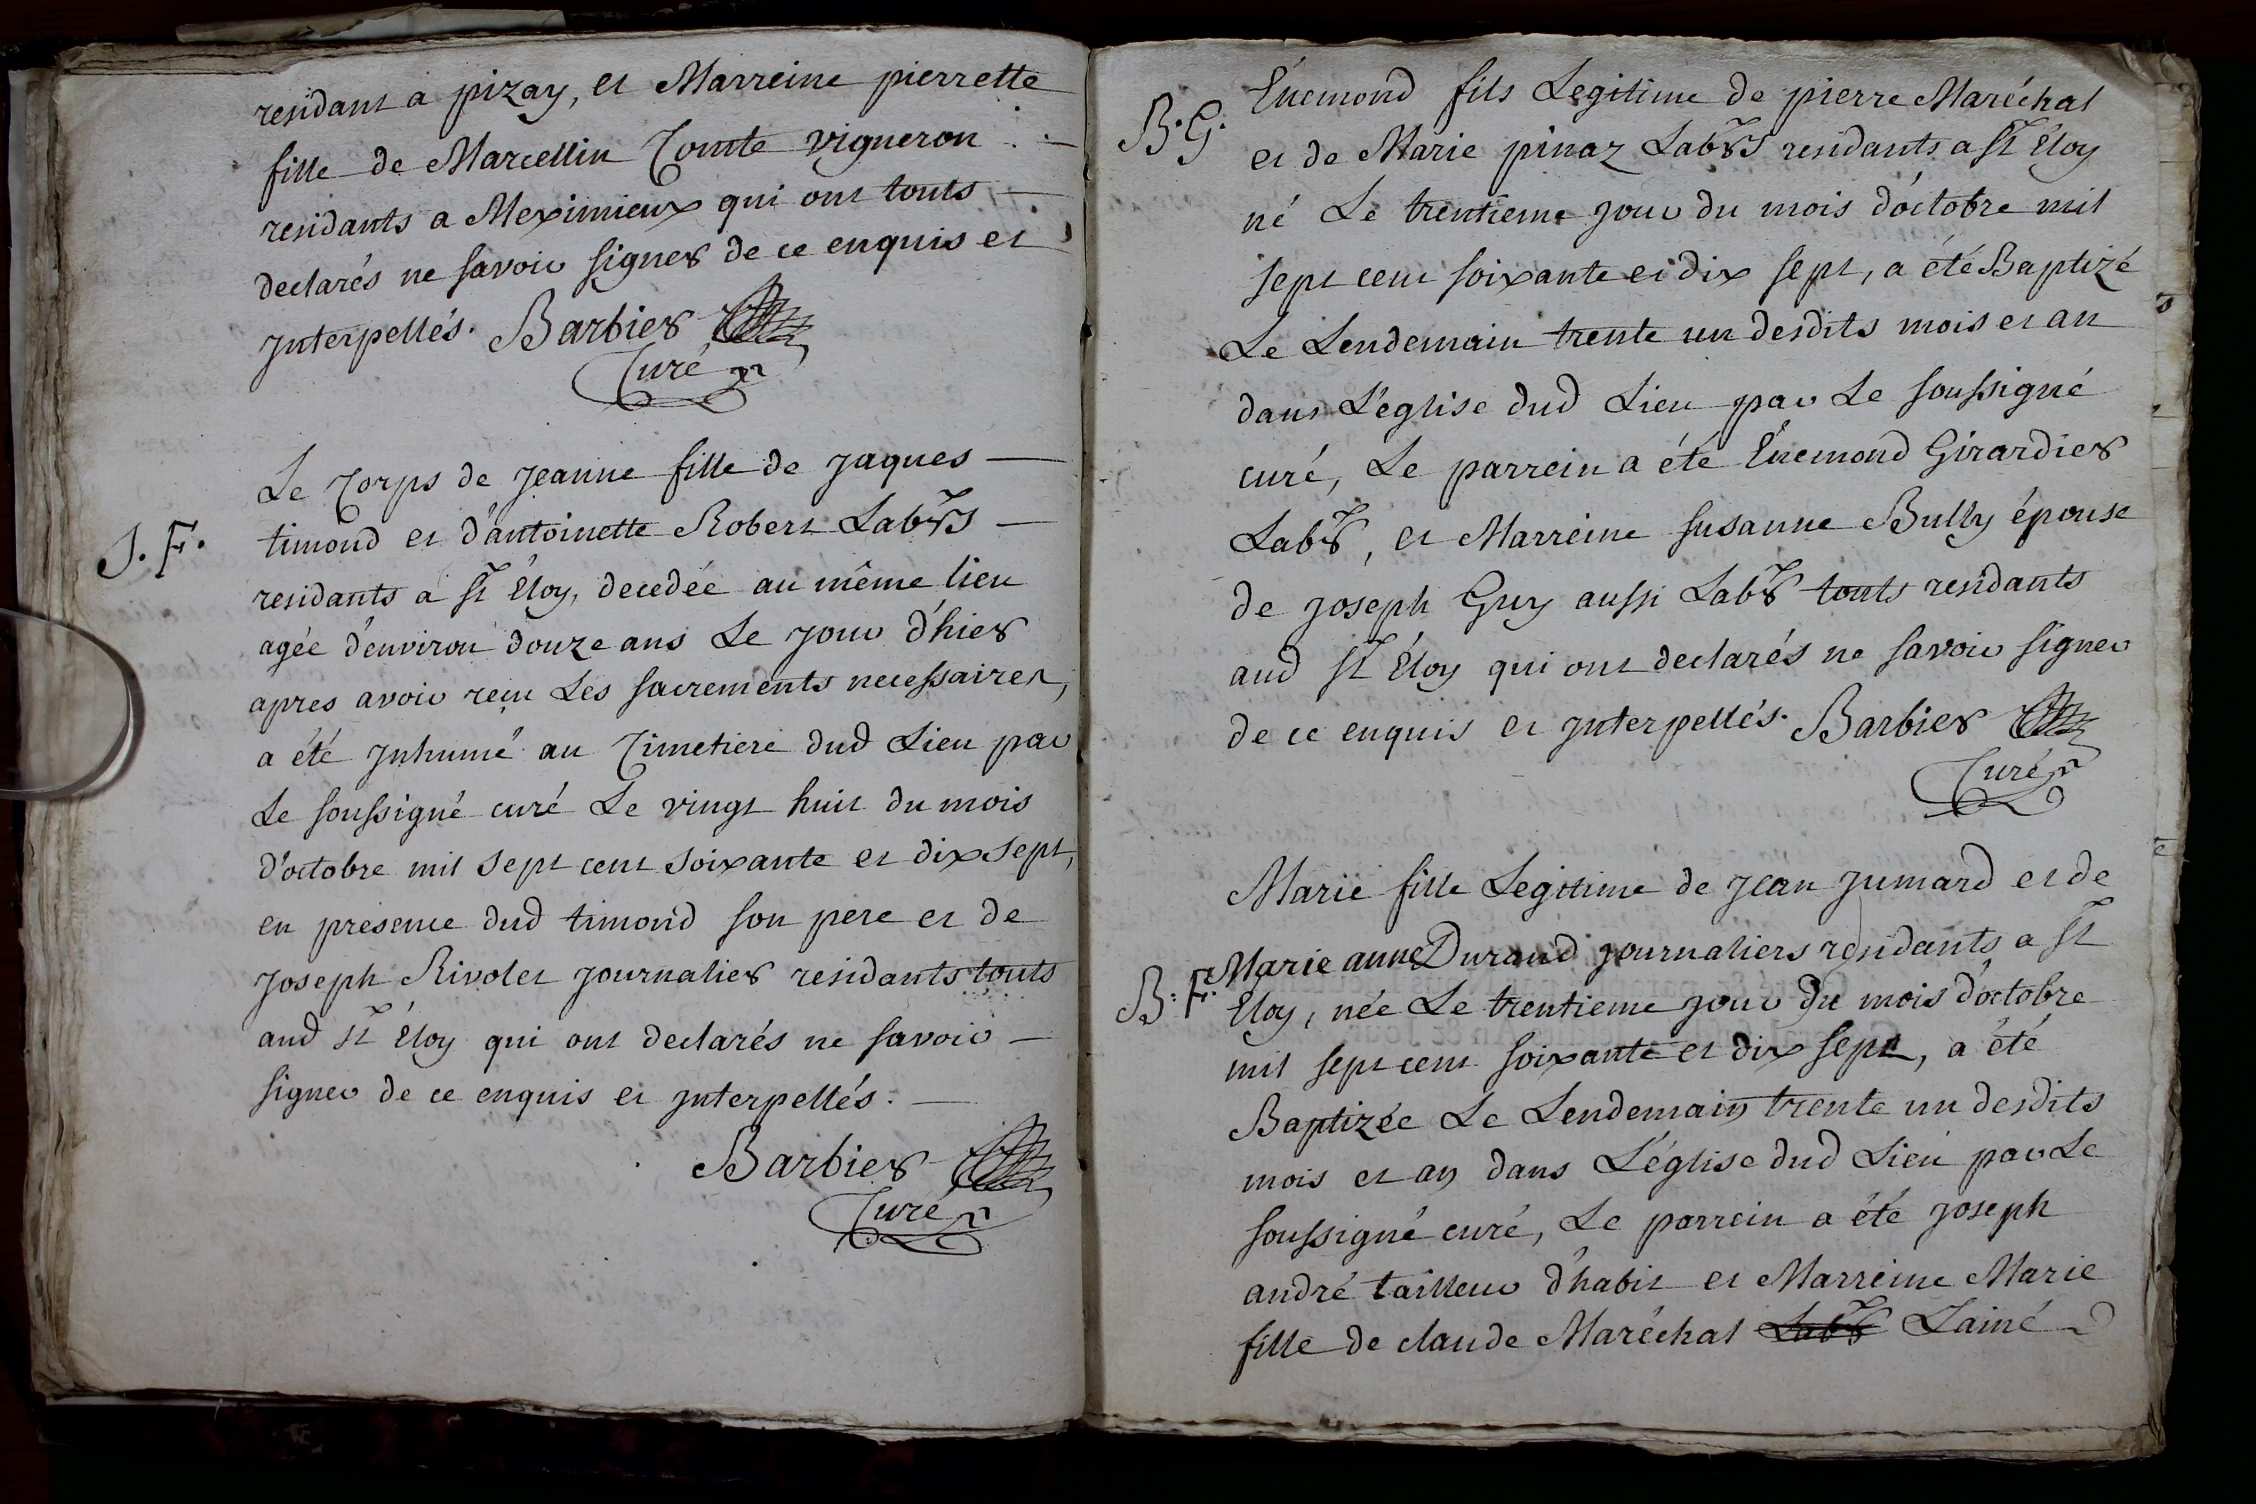 residant a pizay, et Marreine pierrette
fille de Marcellin Comte vigneron
residants a Meximieux qui ont touts
declarés ne savoir signer de ce enquis et
jnterpellés. Barbier
Curé
Le Corps de jeanne fille de jaques
J. F.
timond et d'antoinette Robert Labrs
residants a St Éloy, decedée au même lieu
agée d'environ douze ans Le jour d'hier
apres avoir reçu Les sacrements necessaires,
a été jnhumé au Cimetiere dud Lieu par
Le soussigné curé Le vingt huit du mois
d'octobre mil sept cent soixante et dix sept,
en presence dud timond son pere et de
joseph Rivolet journalier residants touts
aud St Éloy qui ont declarés ne savoir
signer de ce enquis et jnterpellés.
Barbier
Curé
Énemond fils Legitime de pierre Maréchal
B. G.
et de Marie pinaz Labrs residants a St Éloy
né Le trentieme jour du mois d'octobre mil
sept cent soixante et dix sept, a été Baptizé
Le Lendemain trente un desdits mois et an
dans L'eglise dud Lieu par Le soussigné
curé, Le parrein a été Énemond Girardier
Labr, et Marreine susanne Bully épouse
de joseph Guy aussi Labr touts residants
aud St Éloy qui ont declarés ne savoir signer
de ce enquis et jnterpellés. Barbier
Curé
Marie fille Legitime de jean jumard et de
Marie anne Durand journaliers residants a St
B. F.
Eloy, née Le trentieme jour du mois d'octobre
mil sept cent soixante et dix sept, a été
Baptizée Le Lendemain trente un desdits
mois et an dans L'église dud Lieu par Le
soussigné curé, Le parrein a été joseph
andré tailleur d'habit et Marreine Marie
fille de claude Maréchal Labr L'ainé